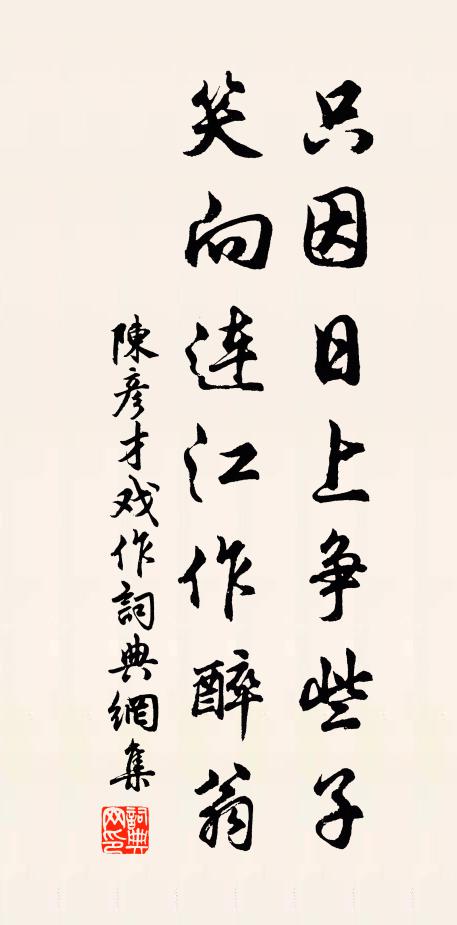 只因日上争些子
笑向連江作醉翁
陳彦才戏作詞典網集
詞典网印